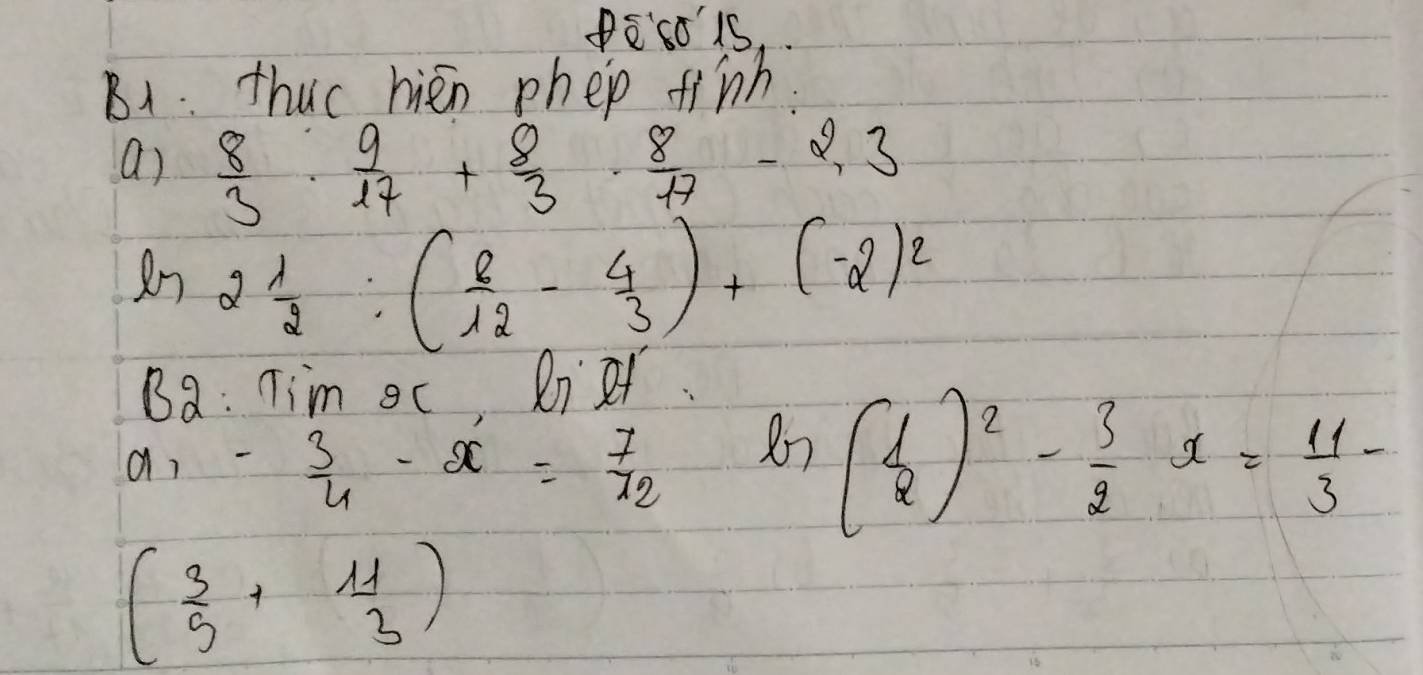 Đề số 15.
B1: thực hiện phép tính:
a) 8/3 . 9/17 + 8/3 . 8/17 - 2,3
b) 2 1/2 : (8/12 - 4/3) + (-2)²
B2: Tìm x, biết:
a, - 3/4 - x = 7/12 b) (1/2)² - 3/2 x = 11/3 -
(3/5 + 11/3)